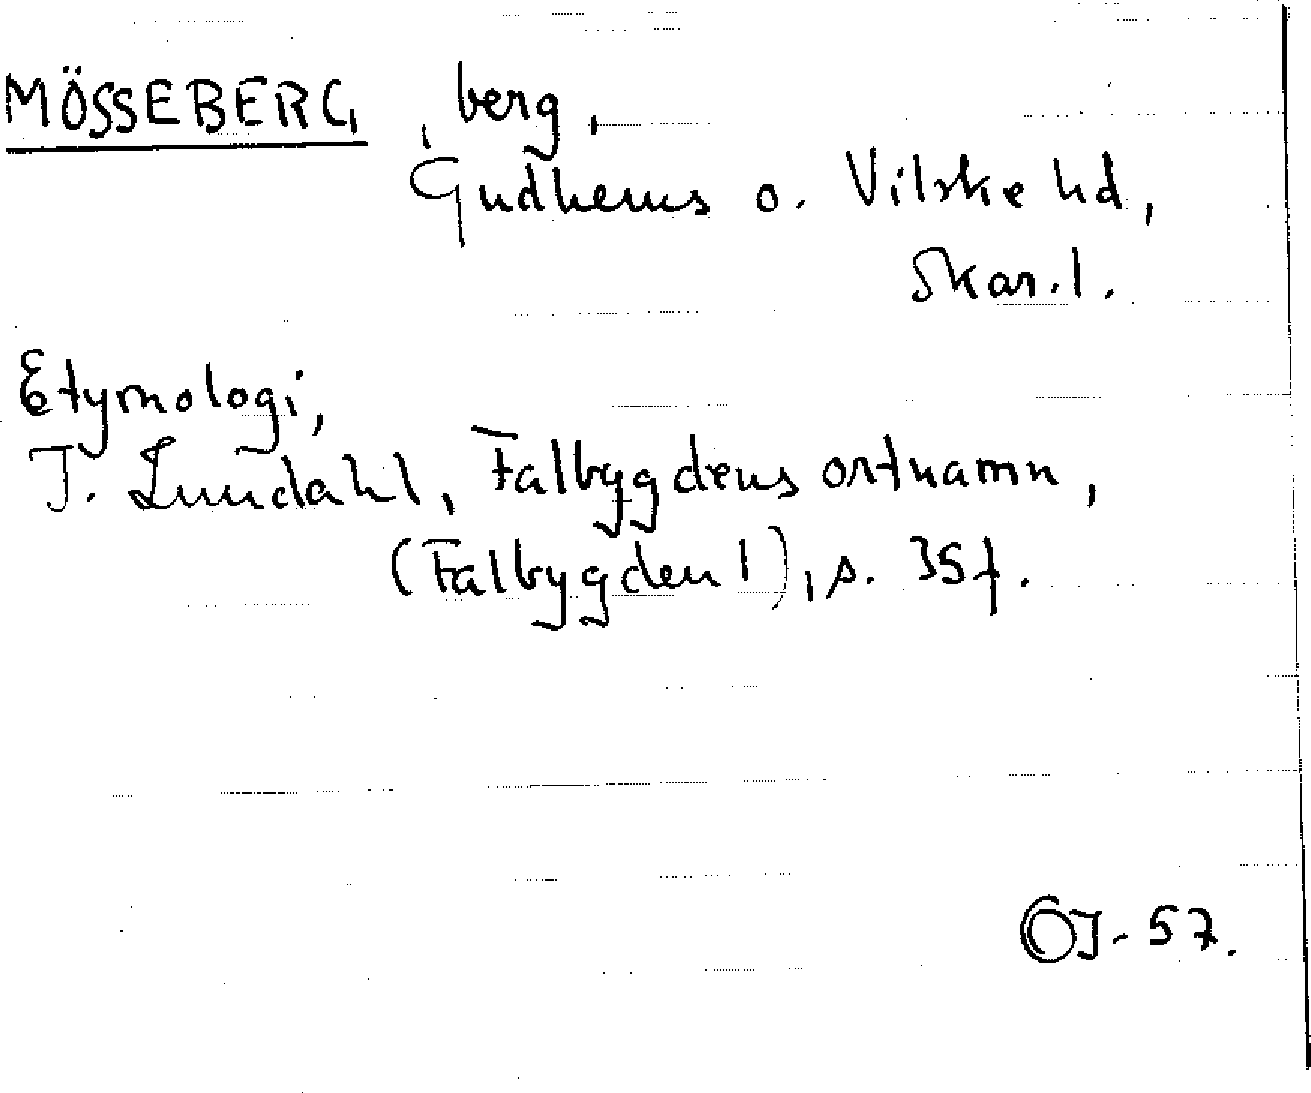 MÖSSEBERG, berg,
Gudhems o. Vilske hd,
Skar. l.
Etymologi,
I. Lundahl, Falbygdens ortnamn,
(Falbygden 1), s. 35 f.
57.